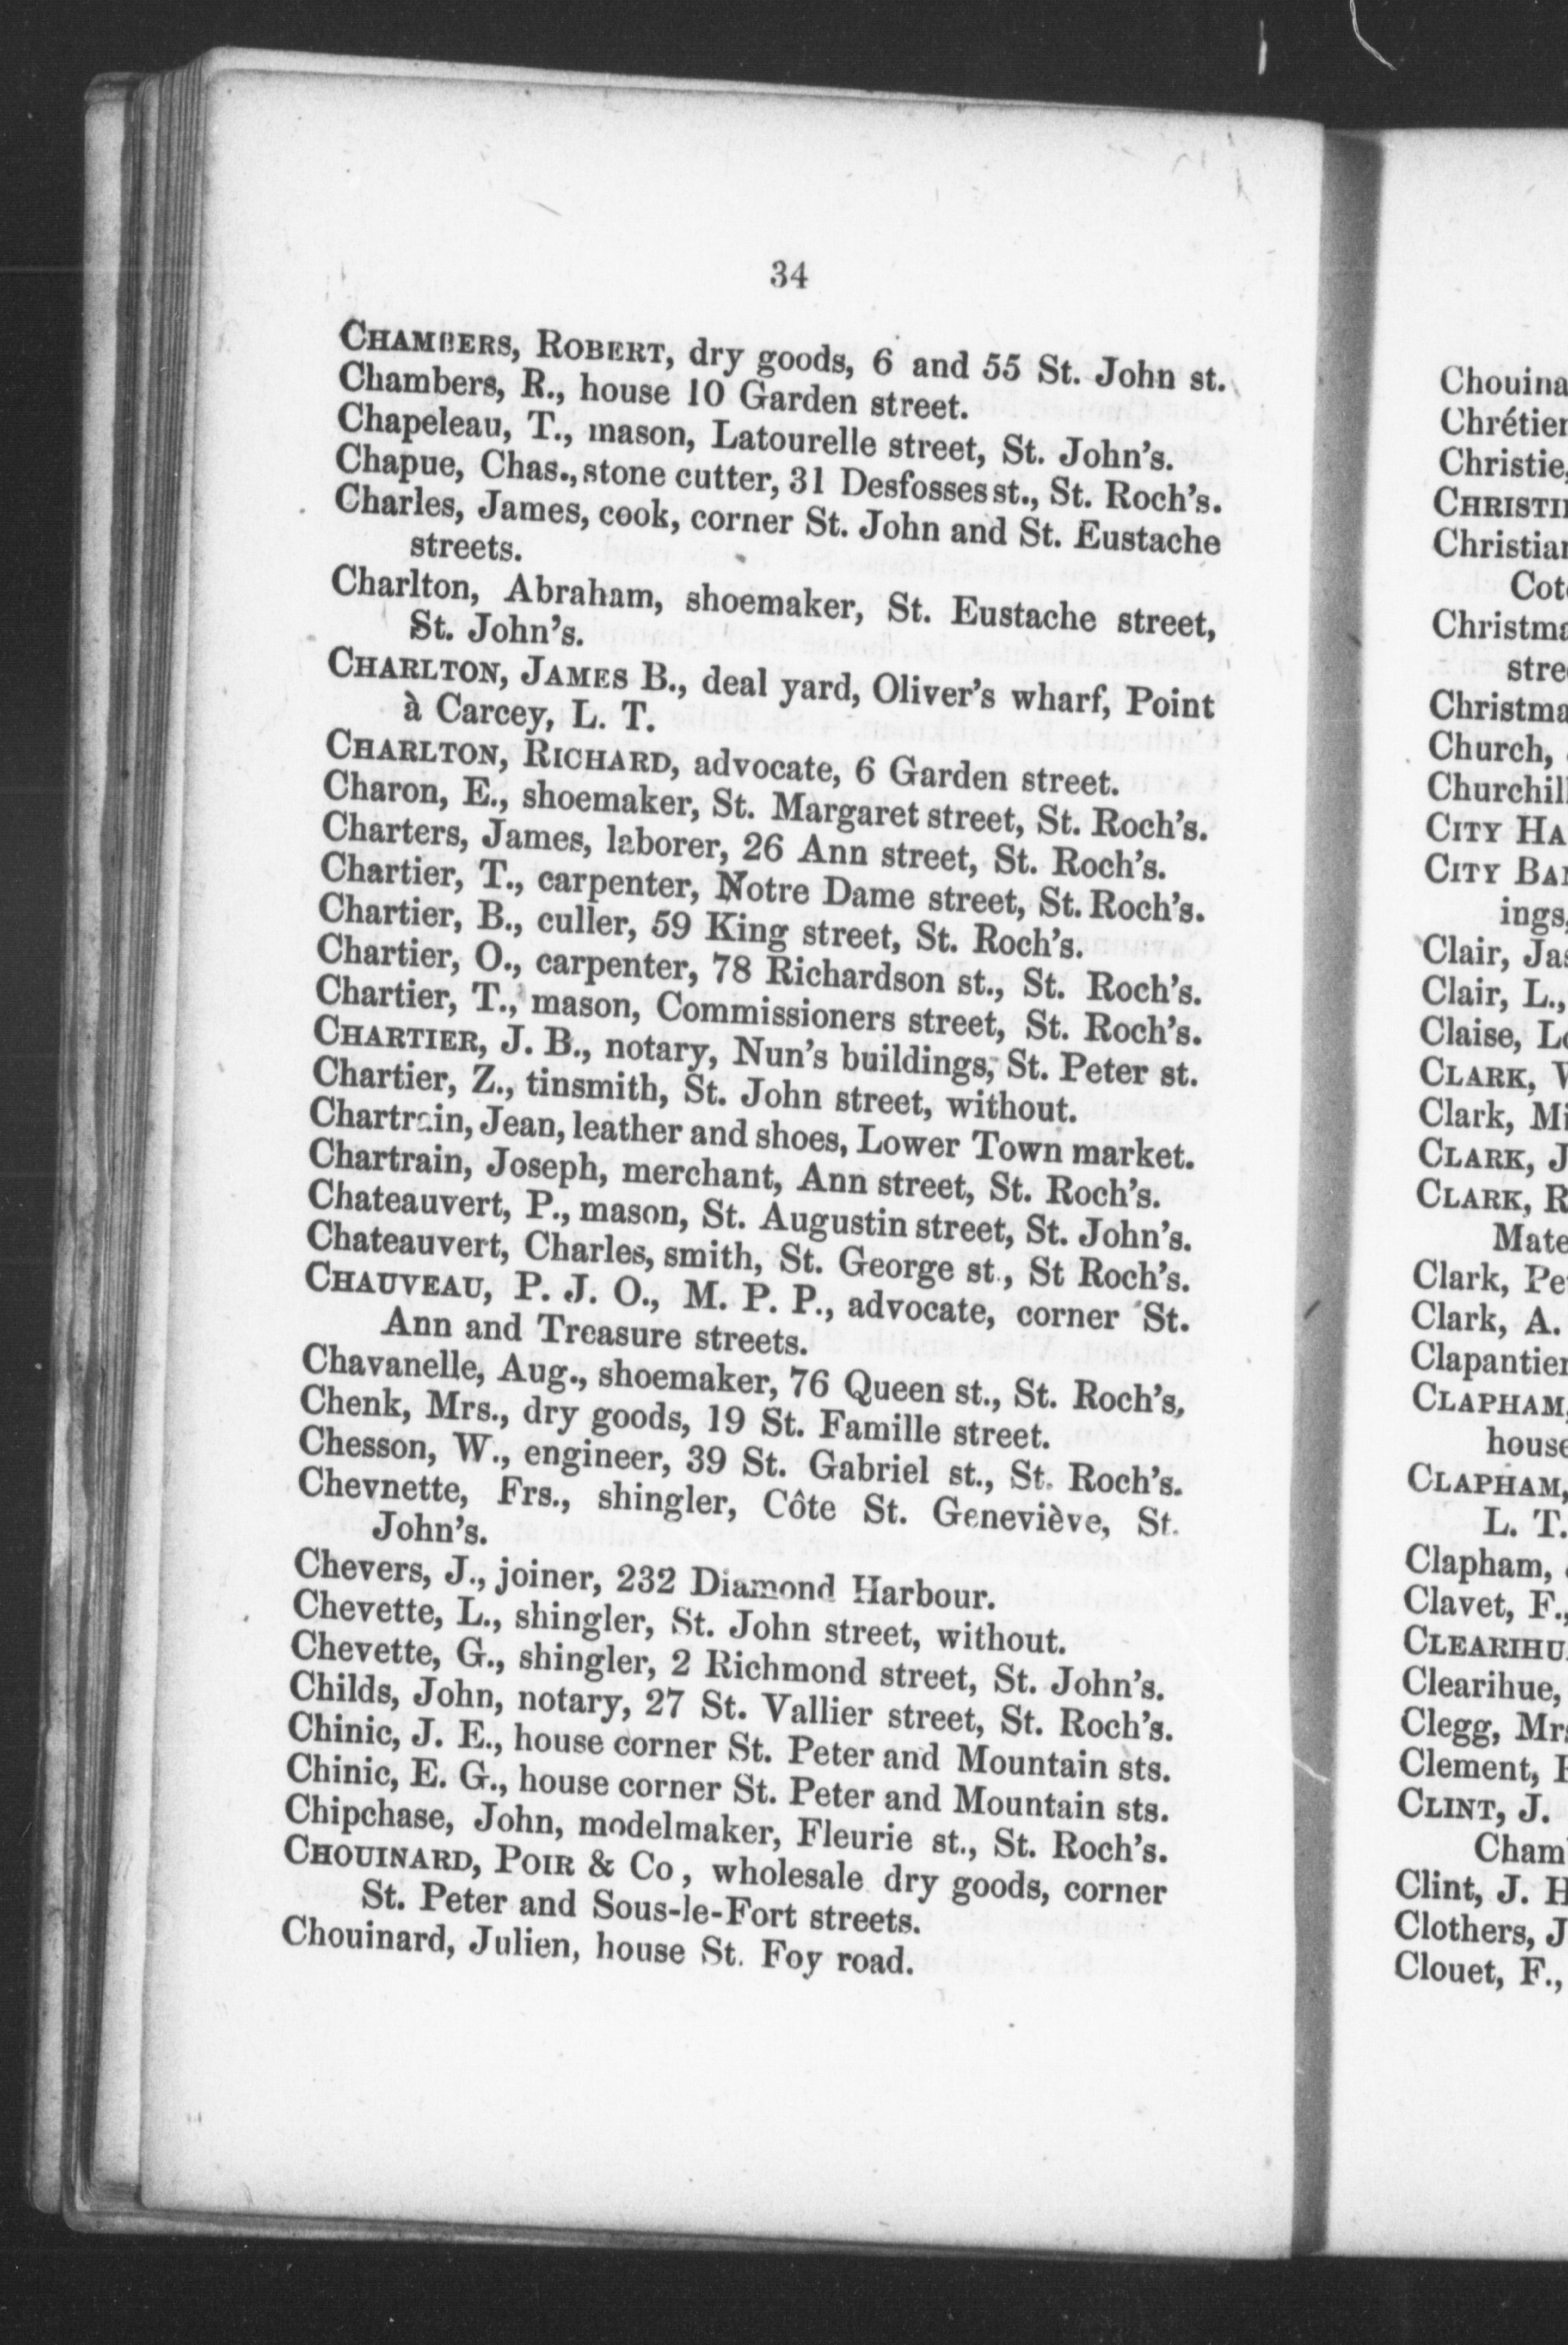 34
CHAMBERS, ROBERT, dry goods, 6 and 55 St. John st.
Chambers, R., house 10 Garden street.
Chapeleau, T., mason, Latourelle street, St. John's.
Chapue, Chas., stone cutter, 31 Desfosses st., St. Roch's.
Charles, James, cook, corner St. John and St. Eustache
streets.
Charlton, Abraham, shoemaker, St. Eustache street,
St. John's.
CHARLTON, JAMES B., deal yard, Oliver's wharf, Point
à Carcey, L. T.
CHARLTON, RICHARD, advocate, 6 Garden street.
Charon, E., shoemaker, St. Margaret street, St. Roch's.
Charters, James, laborer, 26 Ann street, St. Roch's.
Chartier, T., carpenter, Notre Dame street, St. Roch's.
Chartier, B., culler, 59 King street, St. Roch's.
Chartier, O., carpenter, 78 Richardson st., St. Roch's.
Chartier, T., mason, Commissioners street, St. Roch's.
CHARTIER, J. B., notary, Nun's buildings, St. Peter st.
Chartier, Z., tinsmith, St. John street, without.
Chartrain, Jean, leather and shoes, Lower Town market.
Chartrain, Joseph, merchant, Ann street, St. Roch's.
Chateauvert, P., mason, St. Augustin street, St. John's.
Chateauvert, Charles, smith, St. George st., St Roch's.
CHAUVEAU, P. J. O., M. P. P., advocate, corner St.
Ann and Treasure streets.
Chavanelle, Aug., shoemaker, 76 Queen st., St. Roch's,
Chenk, Mrs., dry goods, 19 St. Famille street.
Chesson, W., engineer, 39 St. Gabriel st., St. Roch's.
Chevnette, Frs., shingler, Côte St. Geneviève, St.
John's.
Chevers, J., joiner, 232 Diamond Harbour.
Chevette, L., shingler, St. John street, without.
Chevette, G., shingler, 2 Richmond street, St. John's.
Childs, John, notary, 27 St. Vallier street, St. Roch's.
Chinic, J. E., house corner St. Peter and Mountain sts.
Chinic, E. G., house corner St. Peter and Mountain sts.
Chipchase, John, modelmaker, Fleurie st., St. Roch's.
CHOUINARD, POIR & Co, wholesale dry goods, corner
St. Peter and Sous-le-Fort streets.
Chouinard, Julien, house St. Foy road.
Chouina
Chrétien
Christie,
CHRISTI
Christian
Cot
Christma
stre
Christma
Church,
Churchill
CITY HA
CITY BA
ings,
Clair, Jas
Clair, L.,
Claise, L
CLARK,
Clark, Mi
CLARK, J
CLARK, R
Mate
Clark, Pe
Clark, A.
Clapantier
CLAPHAM,
house
CLAPHAM,
L. T.
Clapham,
Clavet, F.,
CLEARIHU
Clearihue,
Clegg, Mrs
Clement,
CLINT, J.
Cham
Clint, J. H
Clothers, J
Clouet, F.,